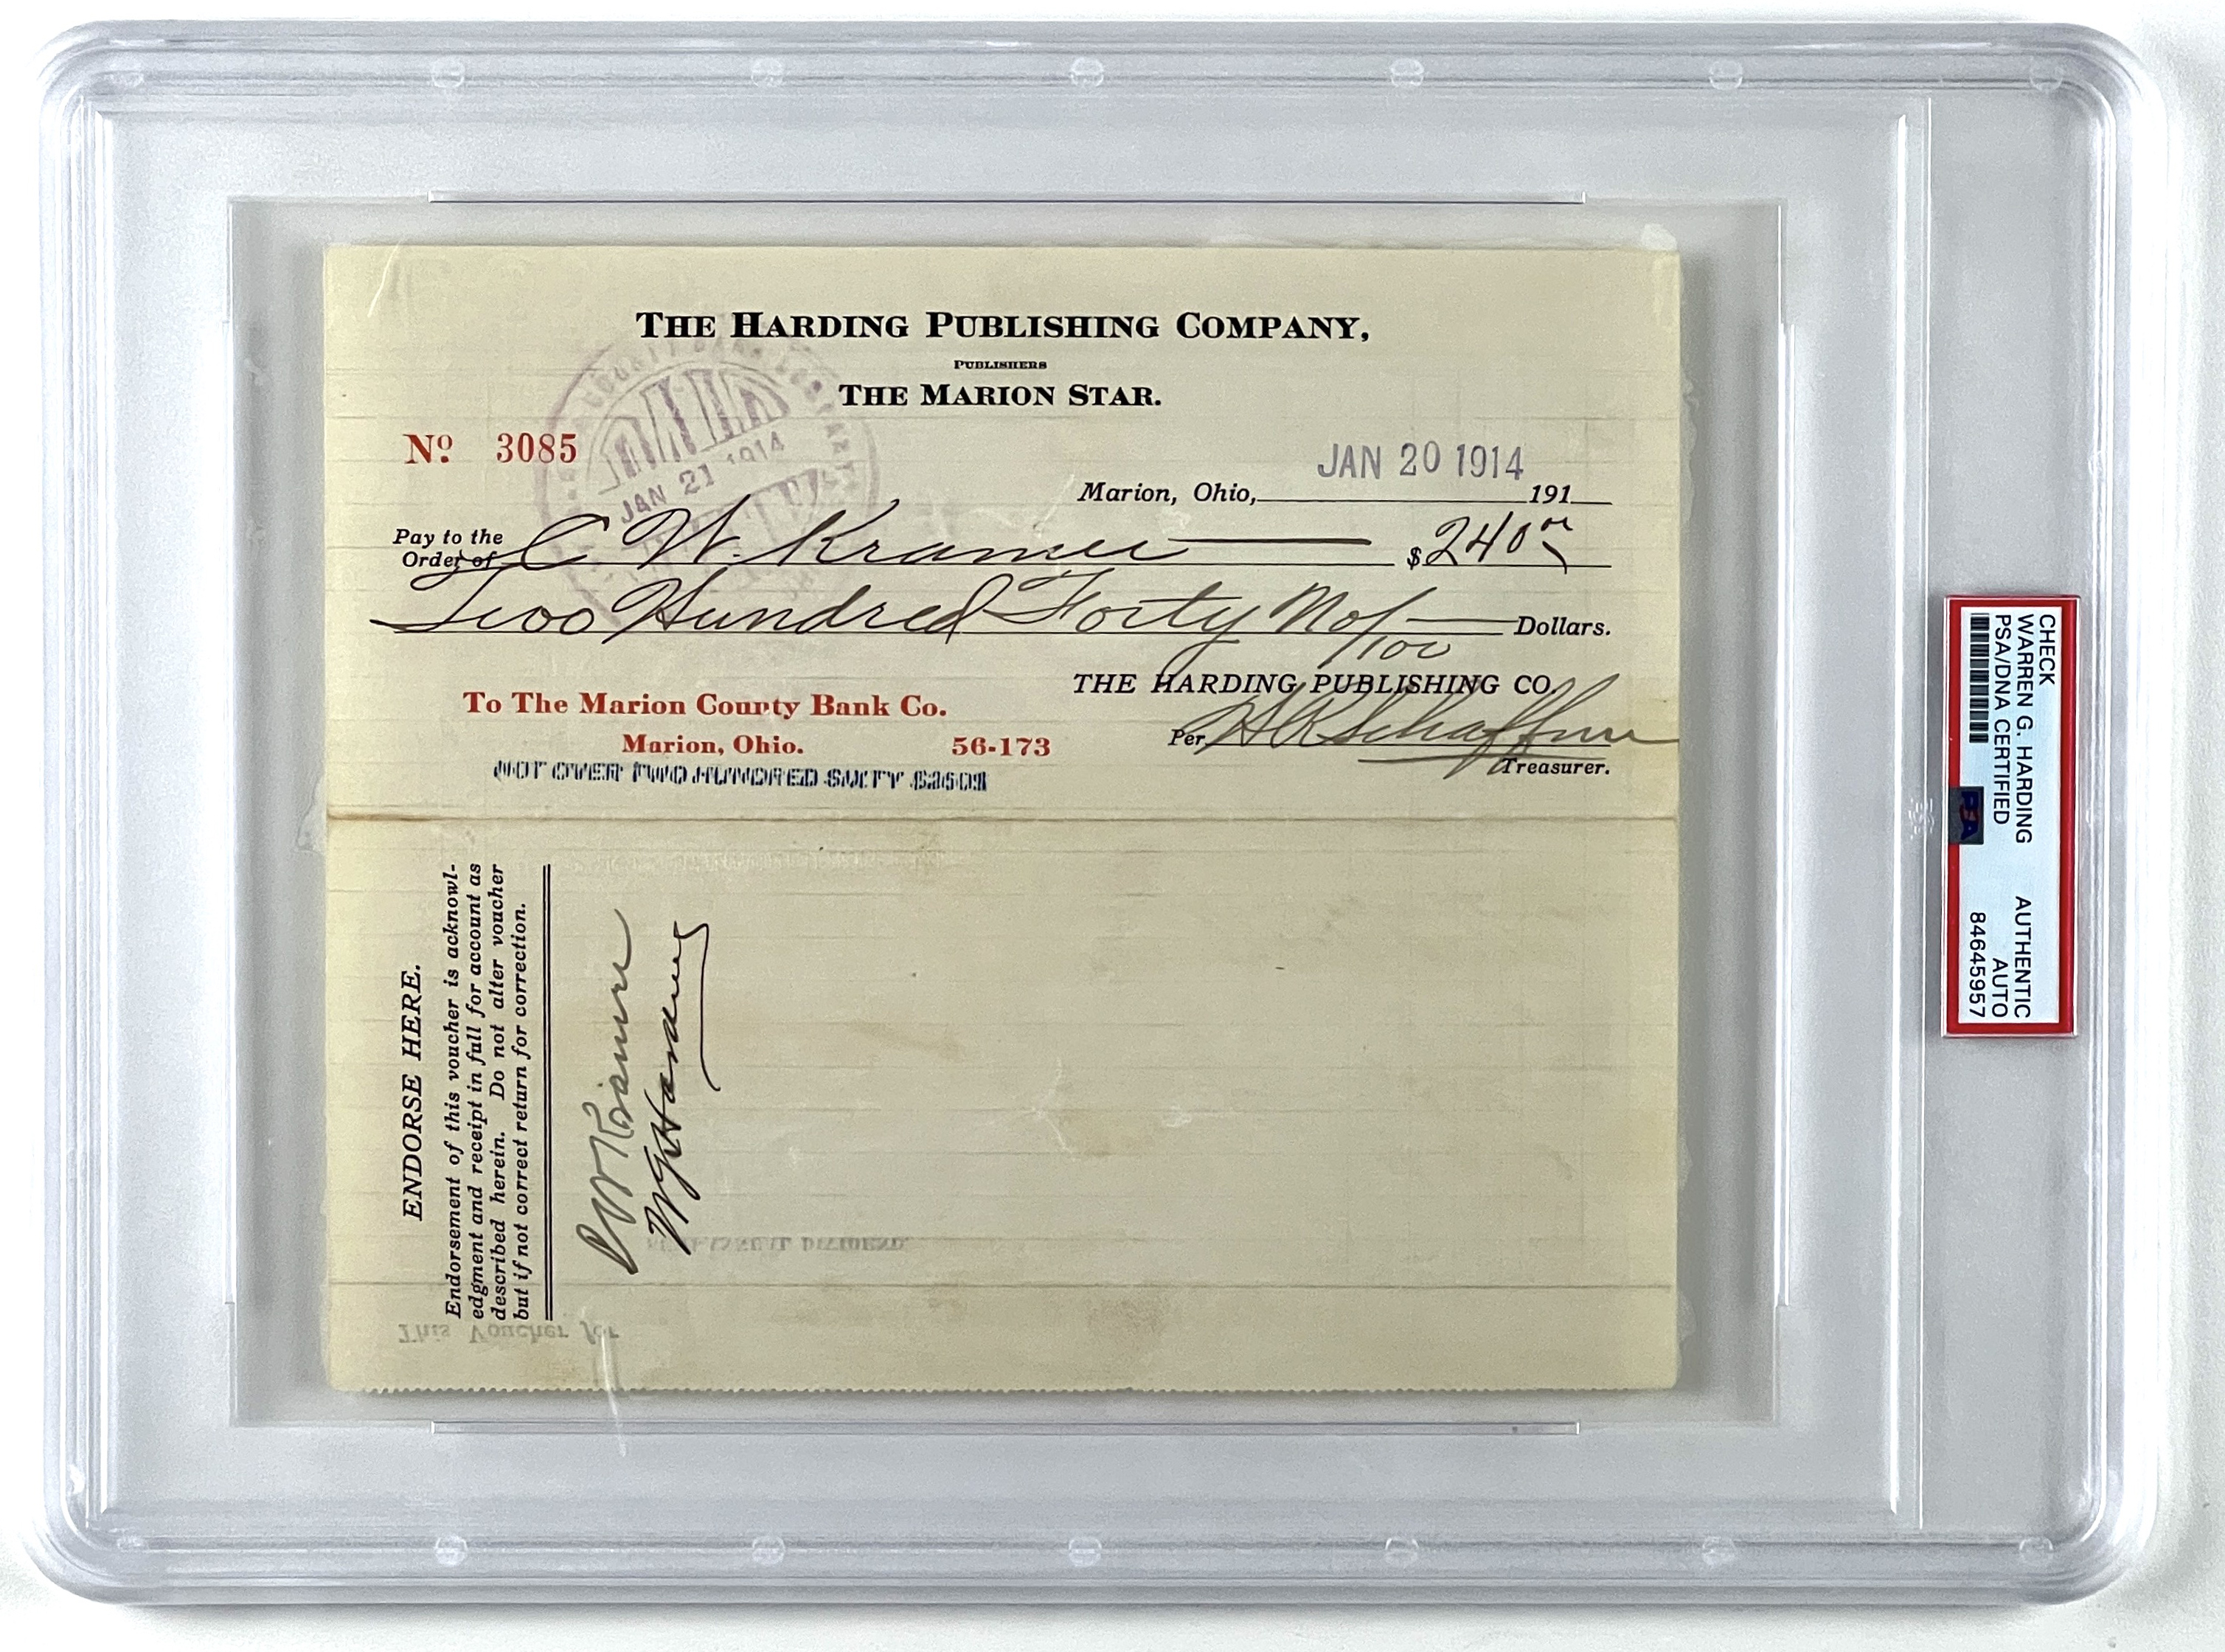 THE HARDING PUBLISHING COMPANY,
PUBLISHERS
THE MARION STAR.
No. 3085
COUNTY BANK
JAN 21 1914
JAN 20 1914
Marion, Ohio, 191
Pay to the Order of C W. Kramer $240 00
Two Hundred Forty No/100 Dollars.
THE HARDING PUBLISHING CO.
To The Marion County Bank Co.
Marion, Ohio. 56-173
Per
Treasurer.
NOT OVER TWO HUNDRED SIXTY $260$
ENDORSE HERE.
Endorsement of this voucher is acknowl-
edgment and receipt in full for account as
described herein. Do not alter voucher
but if not correct return for correction.
C W Kramer
W G Harding
ANNUAL DIVIDEND.
This Voucher for
CHECK
WARREN G. HARDING AUTHENTIC
PSA/DNA CERTIFIED AUTO
84645957
PSA